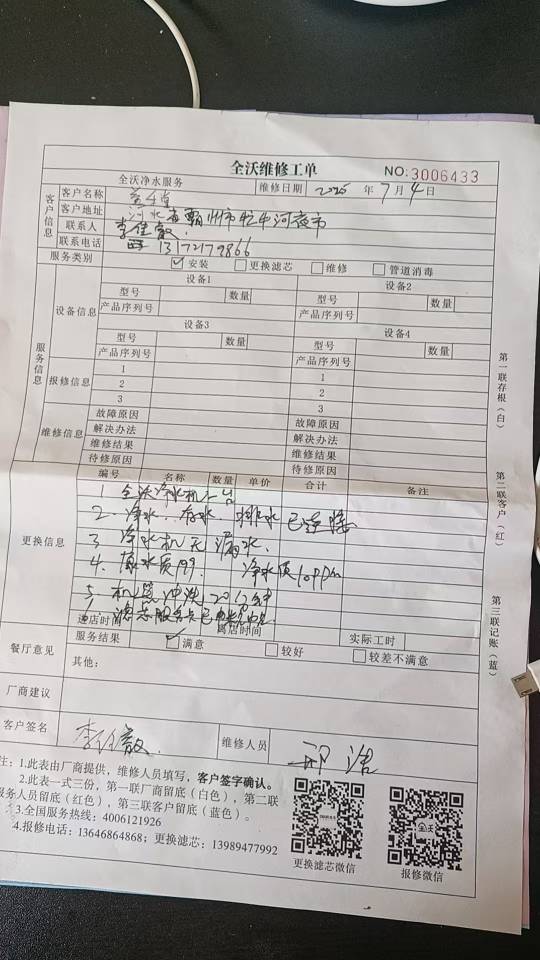 全沃维修工单
NO:3006433
全沃净水服务 维修日期 2025 年 7 月 4 日
客户信息
客户名称
客户地址 河北省霸州市牤牛河夜市
联系人 李佳敏
联系电话 13172179866
服务类别 安装 更换滤芯 维修 管道消毒
服务信息
设备信息
设备1 设备2
型号 数量 型号 数量
产品序列号 产品序列号
设备3 设备4
型号 数量 型号 数量
产品序列号 产品序列号
报修信息
1 1
2 2
3 3
维修信息
故障原因 故障原因
解决办法 解决办法
维修结果 维修结果
待修原因 待修原因
更换信息
编号 名称 数量 单价 合计 备注
1 全沃净水机1台
2. 净水..存水 排水已连接
3 净水机无漏水.
4. 原水质199. 净水质10ppm
5. 机器冲洗20分钟
滤芯服务卡已
到店时间 离店时间
餐厅意见
服务结果 满意 较好 较差不满意
实际工时
其他:
厂商建议
客户签名 李佳敏. 维修人员 邢浩
注:1.此表由厂商提供，维修人员填写，客户签字确认。
2.此表一式三份，第一联厂商留底（白色），第二联
服务人员留底（红色），第三联客户留底（蓝色）。
3.全国服务热线：4006121926
4.报修电话：13646864868；更换滤芯：13989477992
更换滤芯微信 报修微信
第一联存根（白） 第二联客户（红） 第三联记账（蓝）